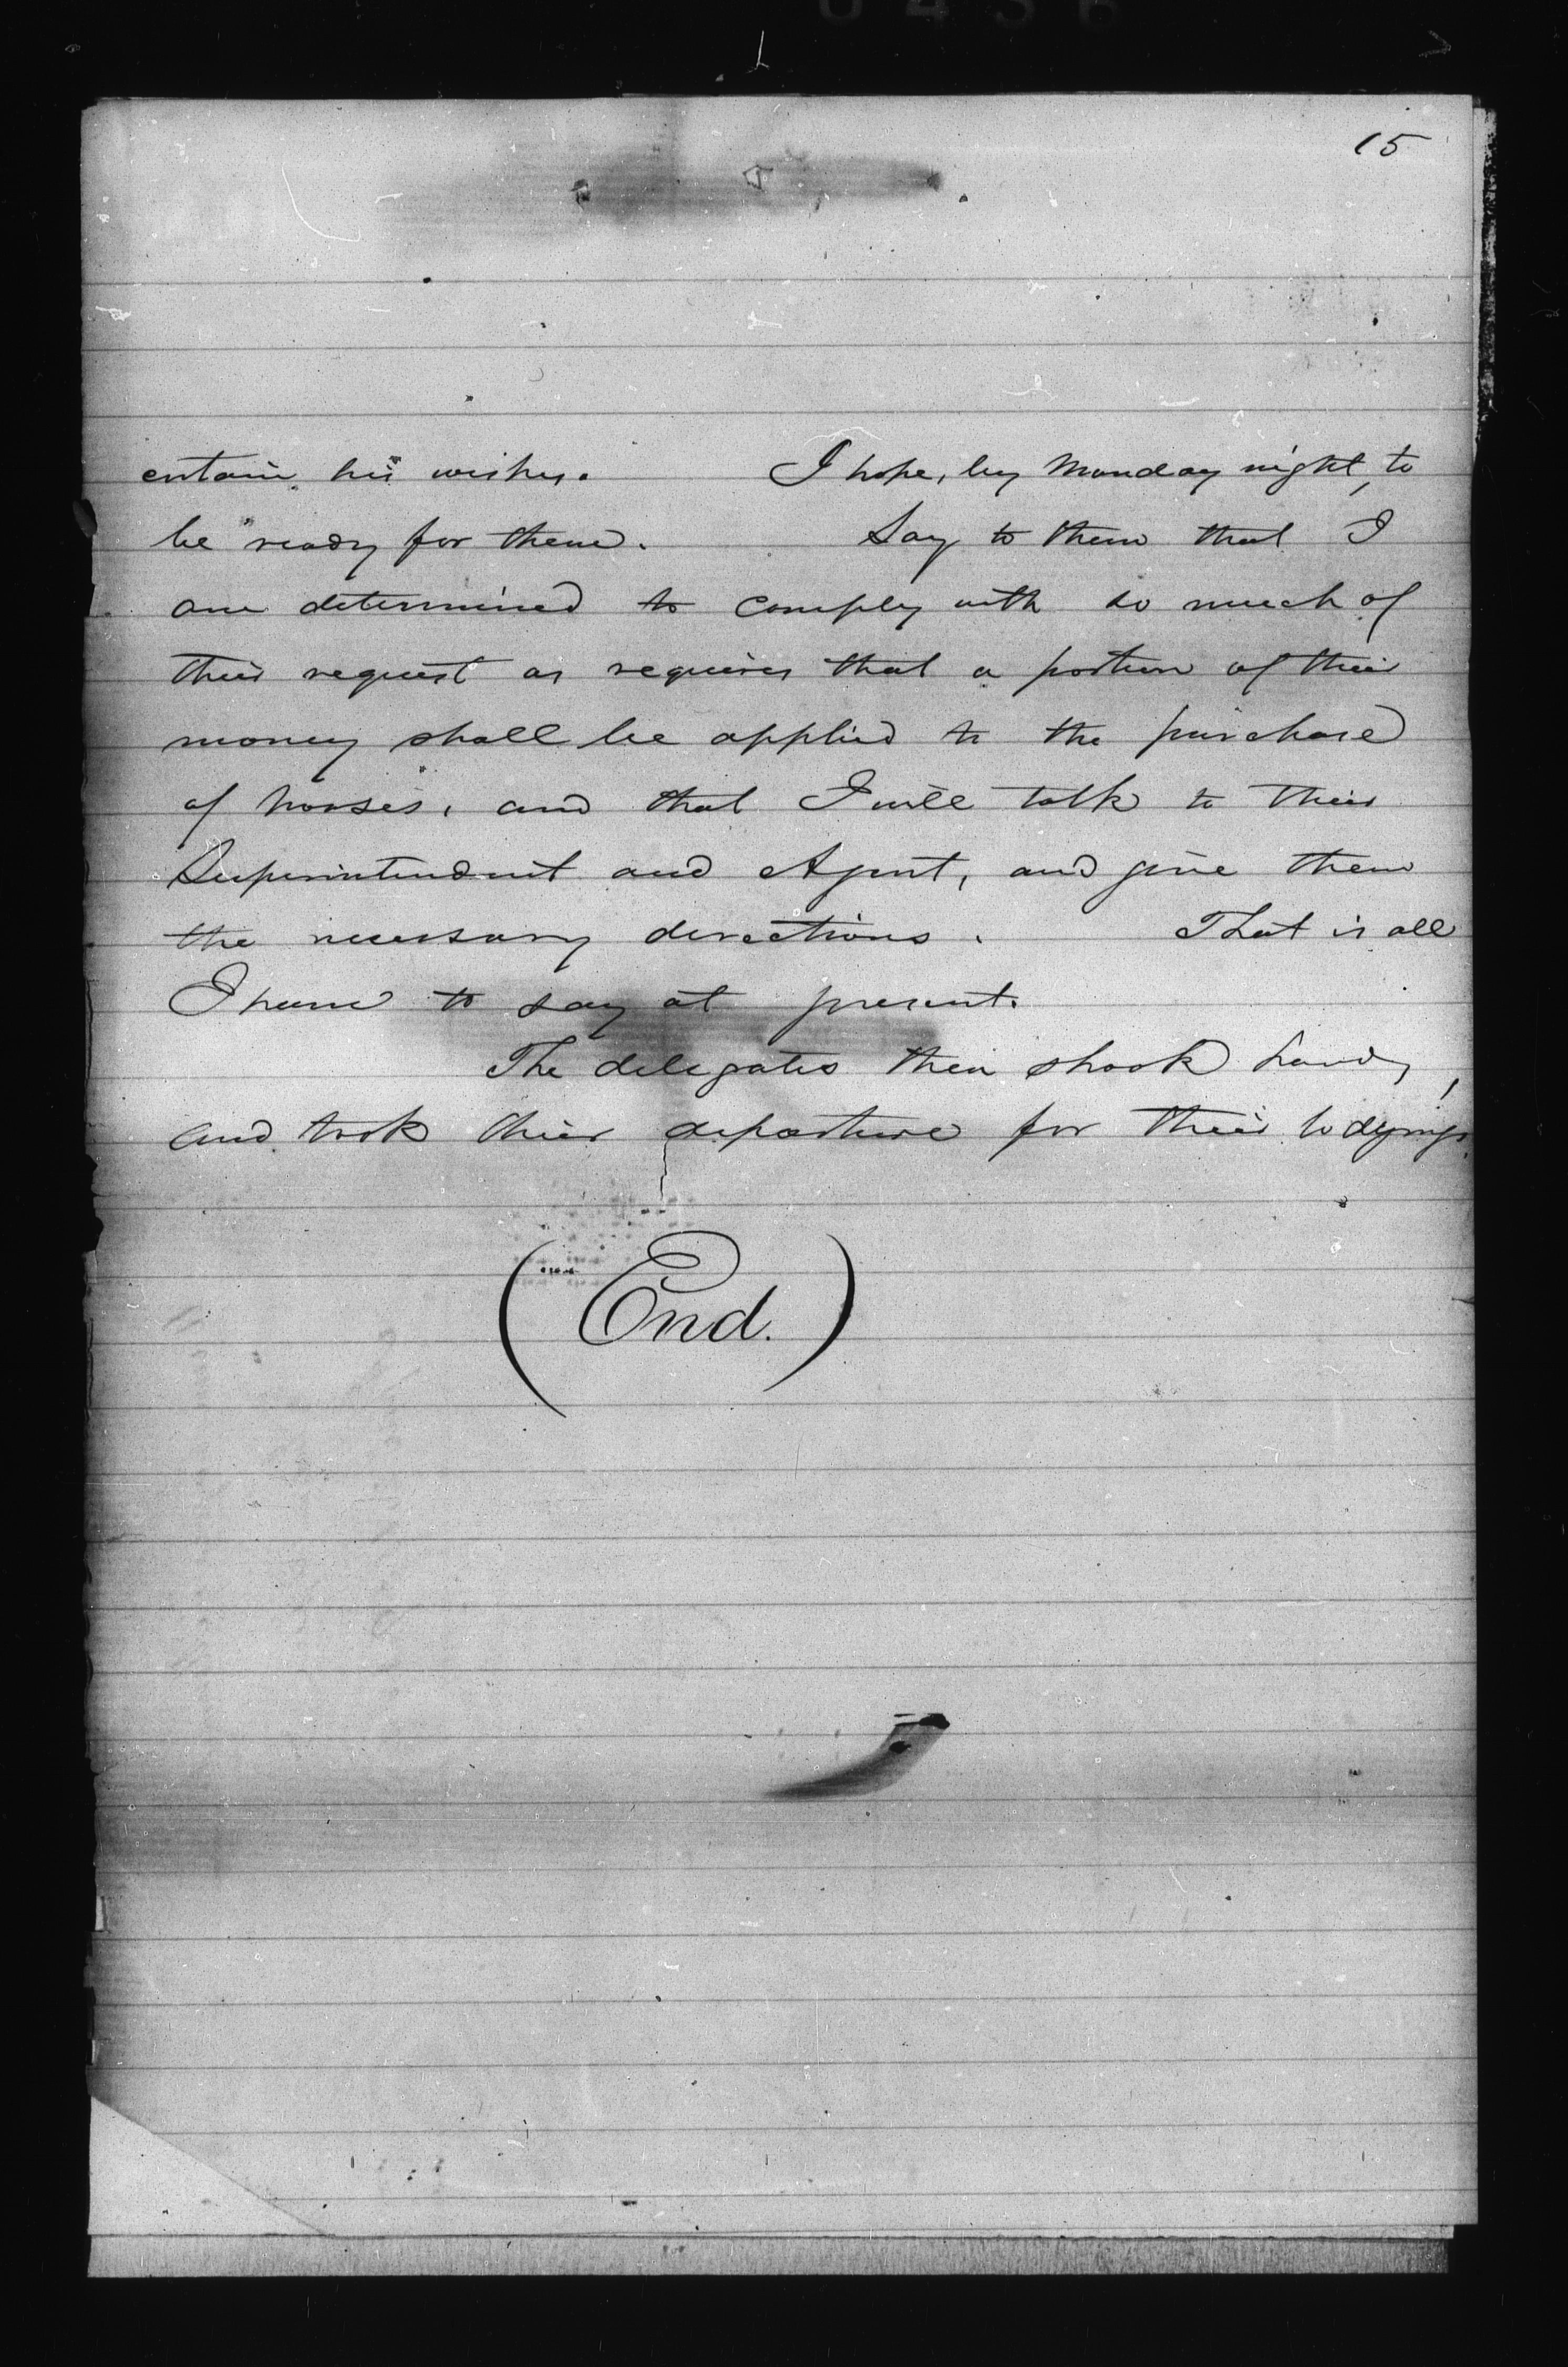 15
certain his wishes. I hope, by Monday night, to
be ready for them. Say to them that I
am determined to comply with so much of
their request as requires that a portion of their
money shall be applied to the purchase
of horses, and that I will talk to their
Superintendent and Agent, and give them
the necessary directions. That is all
I have to say at present.
The delegates then shook hands,
and took their departure for their lodgings.
(End.)